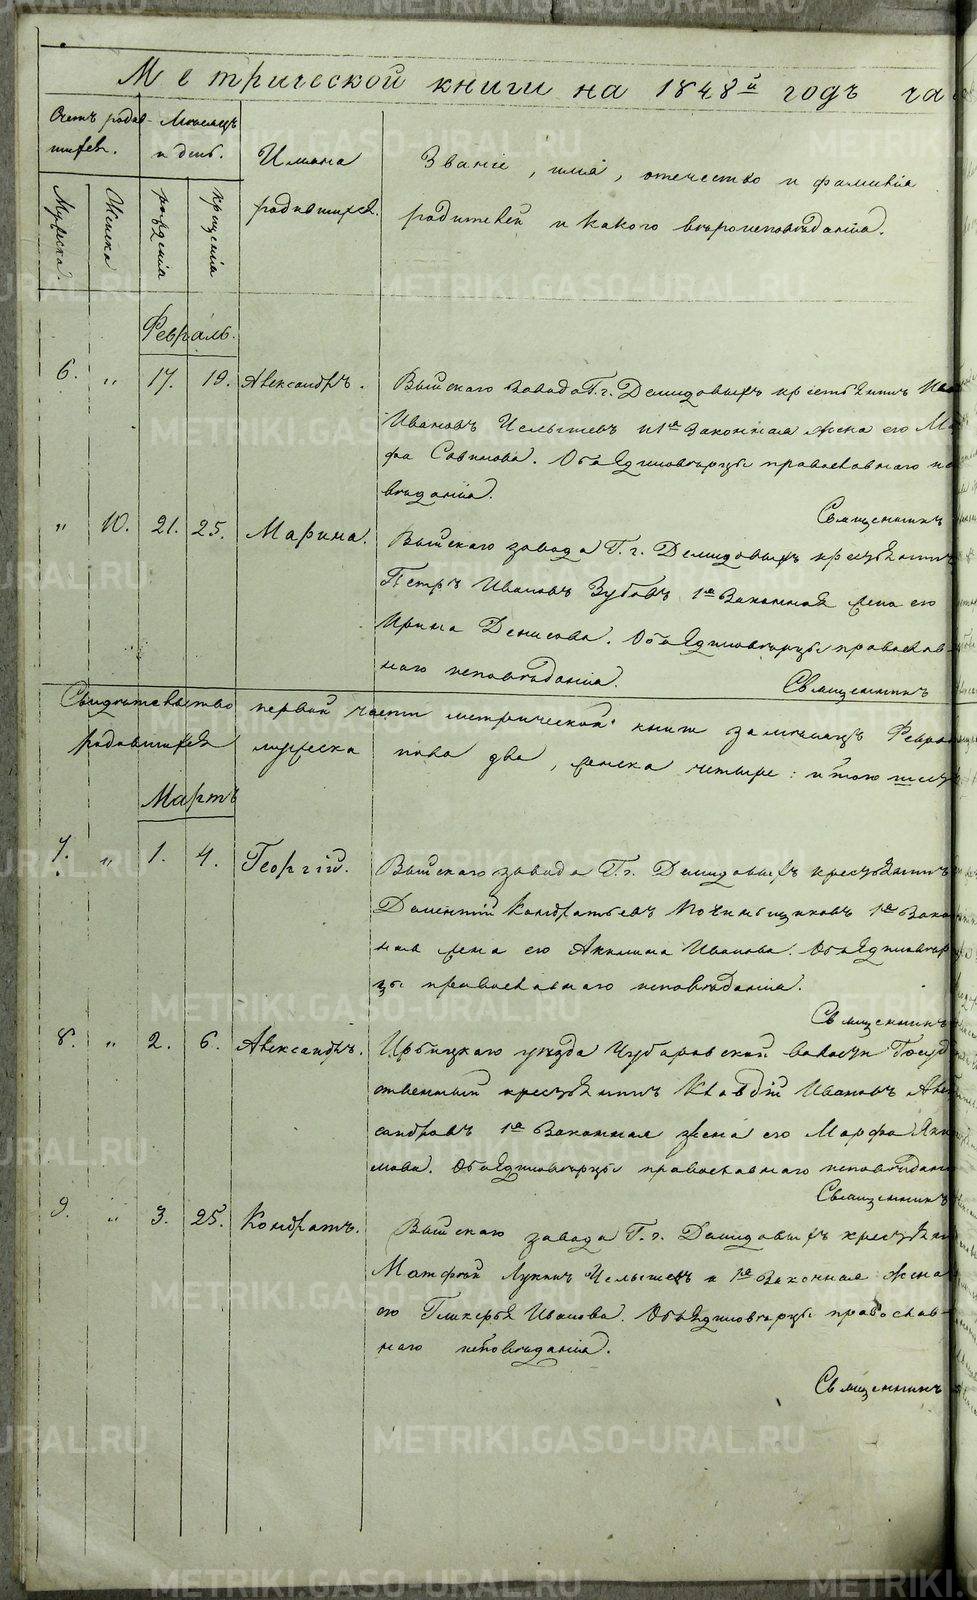 Метрической книги на 1848й годъ ча
Счетъ родив-
шихся.
Мѣсяцъ
и день.
Имена
родившихся.
Званіе, имя, отечество и фамилія
родителей и какого вѣроисповѣданія.
Мужска.
Женска
рожденія
крещенія
Февраль.
6. „ 17. 19. Александръ. Выйскаго завода Г. г. Демидовыхъ крестьянинъ
Ивановъ Челышевъ и 1я законная жена его
Савинова. Оба Единовѣрцы православнаго
вѣданія.
Священникъ
„ 10. 21. 25. Марина. Выйскаго завода Г. г. Демидовыхъ крестьянинъ
Петръ Ивановъ Зубовъ 1я Законная жена его
Ирина Денисова. Оба Единовѣрцы православ-
наго исповѣданія.
Священникъ
Свидѣтельство первой части метрической книги за мѣсяцъ Февраль
родившихся мужеска пола два, женска четыре: итого
Мартъ
7. „ 1. 4. Георгій. Выйскаго завода Г. г. Демидовыхъ крестьянинъ
Дометій Кондратьевъ 1я Закон
ная жена его Акилина Иванова. Оба Единовѣр
цы православнаго исповѣданія.
Священникъ
8. „ 2. 6. Александръ. Ирбитскаго уѣзда Чубаровской волости Госуд
ственный крестьянинъ Клавдій Ивановъ Алек
сандровъ 1я Законная жена его Марфа Яки
мова. Оба Единовѣрцы православнаго исповѣдан
Священникъ
9. „ 3. 25. Кондратъ. Выйскаго завода Г. г. Демидовыхъ крестьянин
Матфей Лукинъ Челышевъ и 1я Законная жена
его Гликерья Иванова. Оба Единовѣрцы православ-
наго исповѣданія.
Священникъ
METRIKI.GASO-URAL.RU